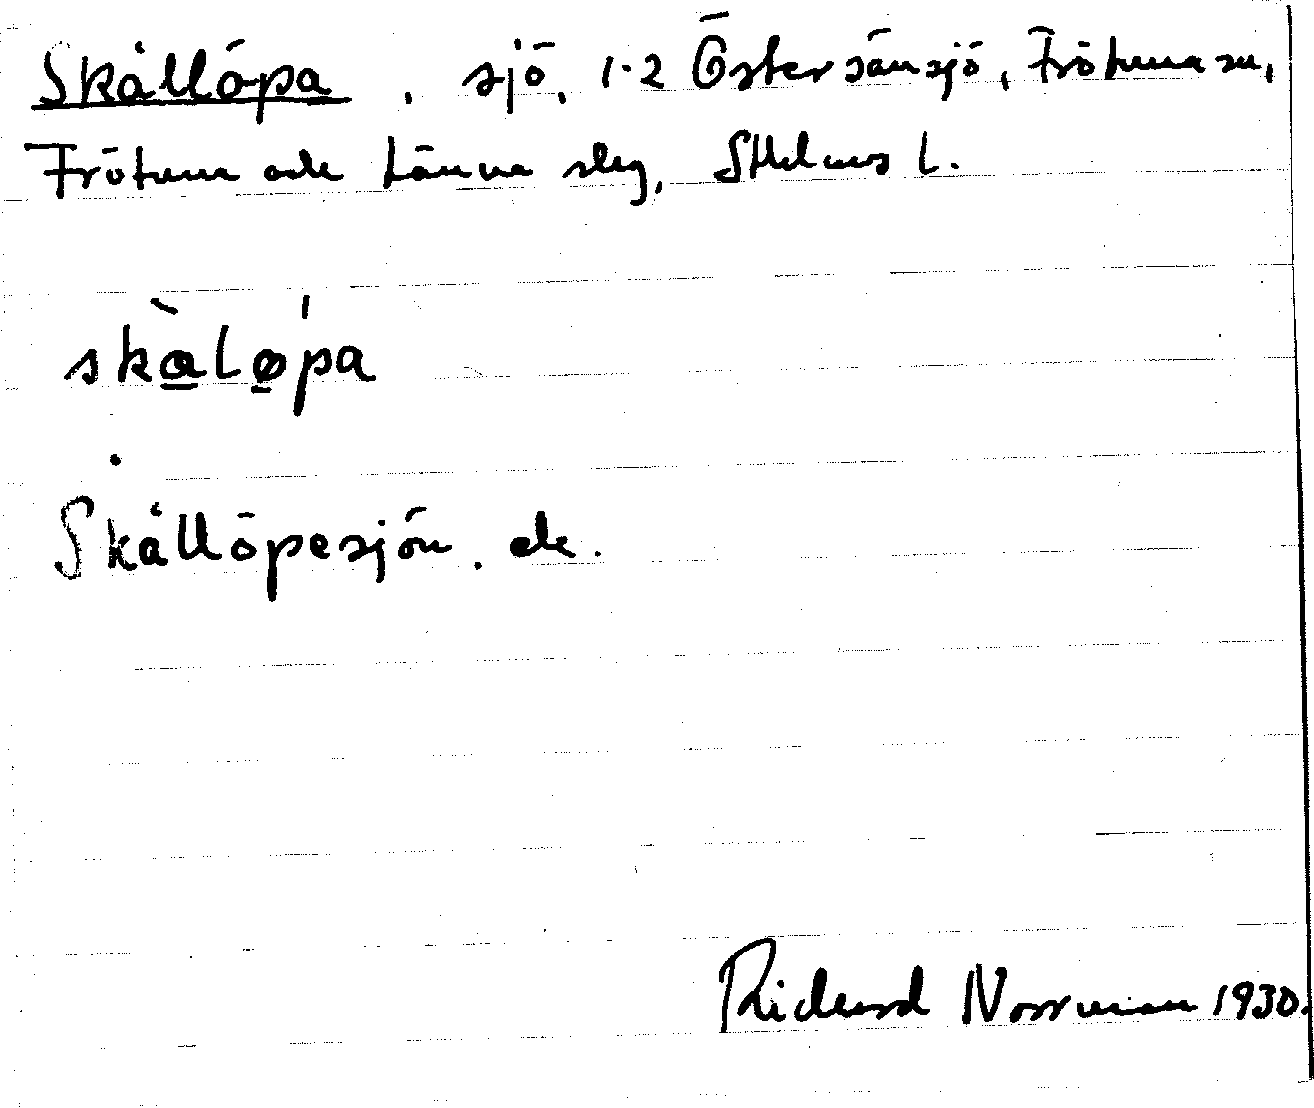 Skållöpa, sjö, 1-2 Östersänsjö, Frötuna sn,
Frötuna och Länna slg, Sthlms l.
skàLø'pa
Skållöpesjön, ek.
Richard Norrman 1930.